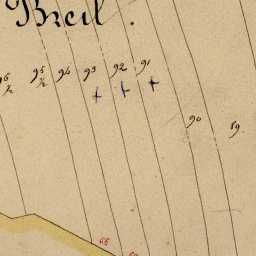 Breil.
96 95 94 93 92 91
½ ½
90 89.
68